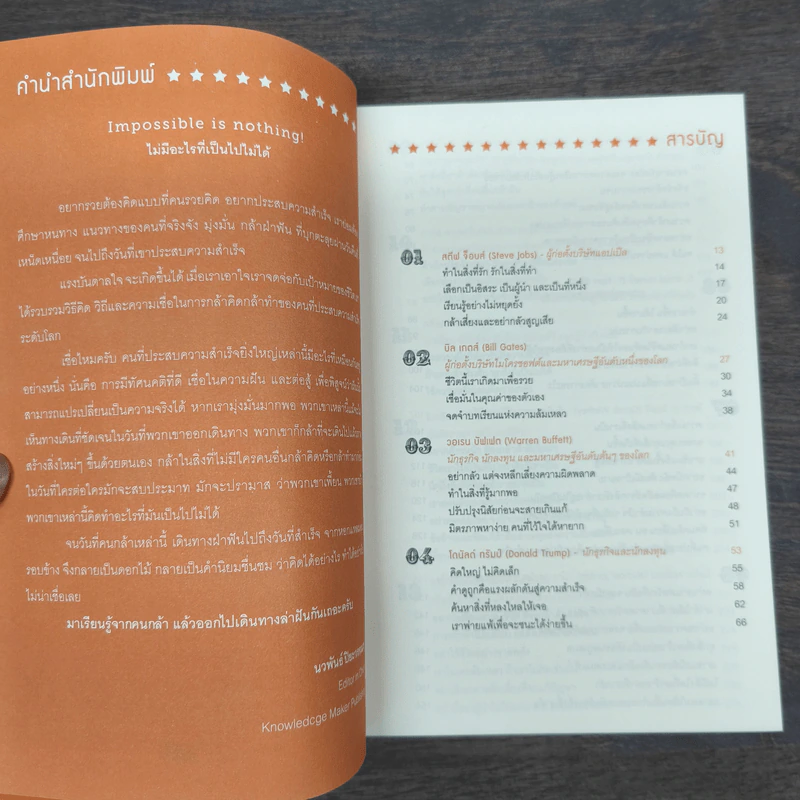 คำนำสำนักพิมพ์
Impossible is nothing!
ไม่มีอะไรที่เป็นไปไม่ได้
อยากรวยต้องคิดแบบที่คนรวยคิด อยากประสบความสำเร็จ เราย่อมต้อง
ศึกษาหนทาง แนวทางของคนที่จริงจัง มุ่งมั่น กล้าฝ่าฟัน ที่บุกตะลุยผ่านวันคืนที่
เหน็ดเหนื่อย จนไปถึงวันที่เขาประสบความสำเร็จ
แรงบันดาลใจ จะเกิดขึ้นได้ เมื่อเราเอาใจเราจดจ่อกับเป้าหมายของชีวิต
ได้รวบรวมวิธีคิด วิถีและความเชื่อในการกล้าคิดกล้าทำของคนที่ประสบความสำเร็จ
ระดับโลก
เชื่อไหมครับ คนที่ประสบความสำเร็จยิ่งใหญ่เหล่านี้มีอะไรที่เหมือนกัน
อย่างหนึ่ง นั่นคือ การมีทัศนคติที่ดี เชื่อในความฝัน และต่อสู้ เพื่อพิสูจน์ว่า
สามารถแปรเปลี่ยนเป็นความจริงได้ หากเรามุ่งมั่นมากพอ พวกเขาเหล่านี้
เห็นทางเดินที่ชัดเจนในวันที่พวกเขาออกเดินทาง พวกเขาก็กล้าที่จะเดินไป
สร้างสิ่งใหม่ๆ ขึ้นด้วยตนเอง กล้าในสิ่งที่ไม่มีใครคนอื่นกล้าคิดหรือกล้าทำ
ในวันที่ใครต่อใครมักจะสบประมาท มักจะปรามาส ว่าพวกเขาเพี้ยน
พวกเขาเหล่านี้คิดทำอะไรที่มันเป็นไปไม่ได้
จนวันที่คนกล้าเหล่านี้ เดินทางฝ่าฟันไปถึงวันที่สำเร็จ จาก
รอบข้าง จึงกลายเป็นดอกไม้ กลายเป็นคำนิยมชื่นชม ว่าคิดได้อย่างไร ทำได้
ไม่น่าเชื่อเลย
มาเรียนรู้จากคนกล้า แล้วออกไปเดินทางล่าฝันกันเถอะครับ
นวพันธ์
Editor in
Knowledcge Maker
สารบัญ
01 สตีฟ จ็อบส์ (Steve Jobs) - ผู้ก่อตั้งบริษัทแอปเปิล 13
ทำในสิ่งที่รัก รักในสิ่งที่ทำ 14
เลือกเป็นอิสระ เป็นผู้นำ และเป็นที่หนึ่ง 17
เรียนรู้อย่างไม่หยุดยั้ง 20
กล้าเสี่ยงและอย่ากลัวสูญเสีย 24
02 บิล เกตส์ (Bill Gates)
ผู้ก่อตั้งบริษัทไมโครซอฟต์และมหาเศรษฐีอันดับหนึ่งของโลก 27
ชีวิตนี้เราเกิดมาเพื่อรวย 30
เชื่อมั่นในคุณค่าของตัวเอง 34
จดจำบทเรียนแห่งความล้มเหลว 38
03 วอเรน บัฟเฟต (Warren Buffett)
นักธุรกิจ นักลงทุน และมหาเศรษฐีอันดับต้นๆ ของโลก 41
อย่ากลัว แต่จงหลีกเลี่ยงความผิดพลาด 44
ทำในสิ่งที่รู้มากพอ 47
ปรับปรุงนิสัยก่อนจะสายเกินแก้ 48
มิตรภาพหาง่าย คนที่ไว้ใจได้หายาก 51
04 โดนัลด์ ทรัมป์ (Donald Trump) - นักธุรกิจและนักลงทุน 53
คิดใหญ่ ไม่คิดเล็ก 55
คำดูถูกคือแรงผลักดันสู่ความสำเร็จ 58
ค้นหาสิ่งที่หลงใหลให้เจอ 62
เราพ่ายแพ้เพื่อจะชนะได้ง่ายขึ้น 66